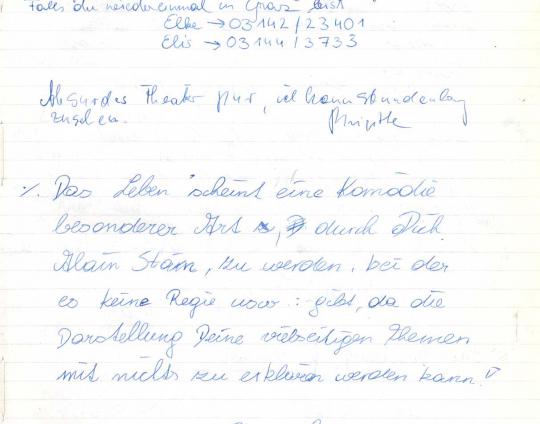 Falls du wiedereinmal in Graz bist
Elke → 03142/23401
Elis → 03144/3733
Absurdes Theater pur, ich kann stundenlang
zusehen.
Brigitte
%. Das Leben scheint eine Komödie
besonderer Art, durch Dich
Alain Stärn, zu werden, bei der
es keine Regie usw.: gibt, da die
Darstellung Deine vielseitigen Themen
mit nichts zu erklären werden kann!